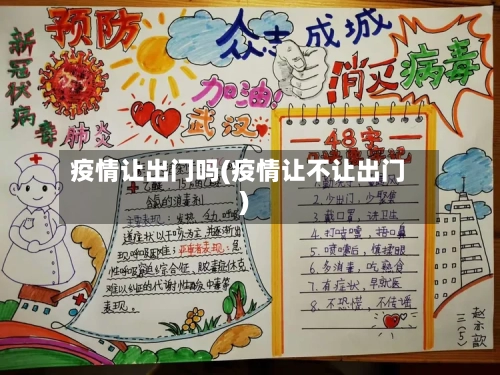 预防
新冠状病毒肺炎
众志成城
消灭病毒
加油!
武汉
疫情让出门吗(疫情让不让出门
)
48字
乙醚、75
氯的消毒剂
主要表现：发热、乏力、
道症状以干咳为主，并逐渐出
现呼吸困难；
性呼吸窘迫综合征、脓毒症休克、
难以纠正的代谢性酸中毒等
表现。
2.少出门，少聚集
3.戴口罩，讲卫生
4.打喷嚏，捂口鼻
5.喷嚏后，慎揉眼
6.多消毒，吃熟食
7.有症状，早就医
8.不恐慌，不传谣
三(5)